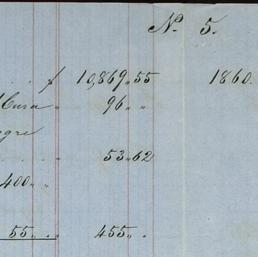 No. 5.
. . $ 10,869.55 1860.
96 . .
. . 53.62
400 . .
55 . . 455 . .